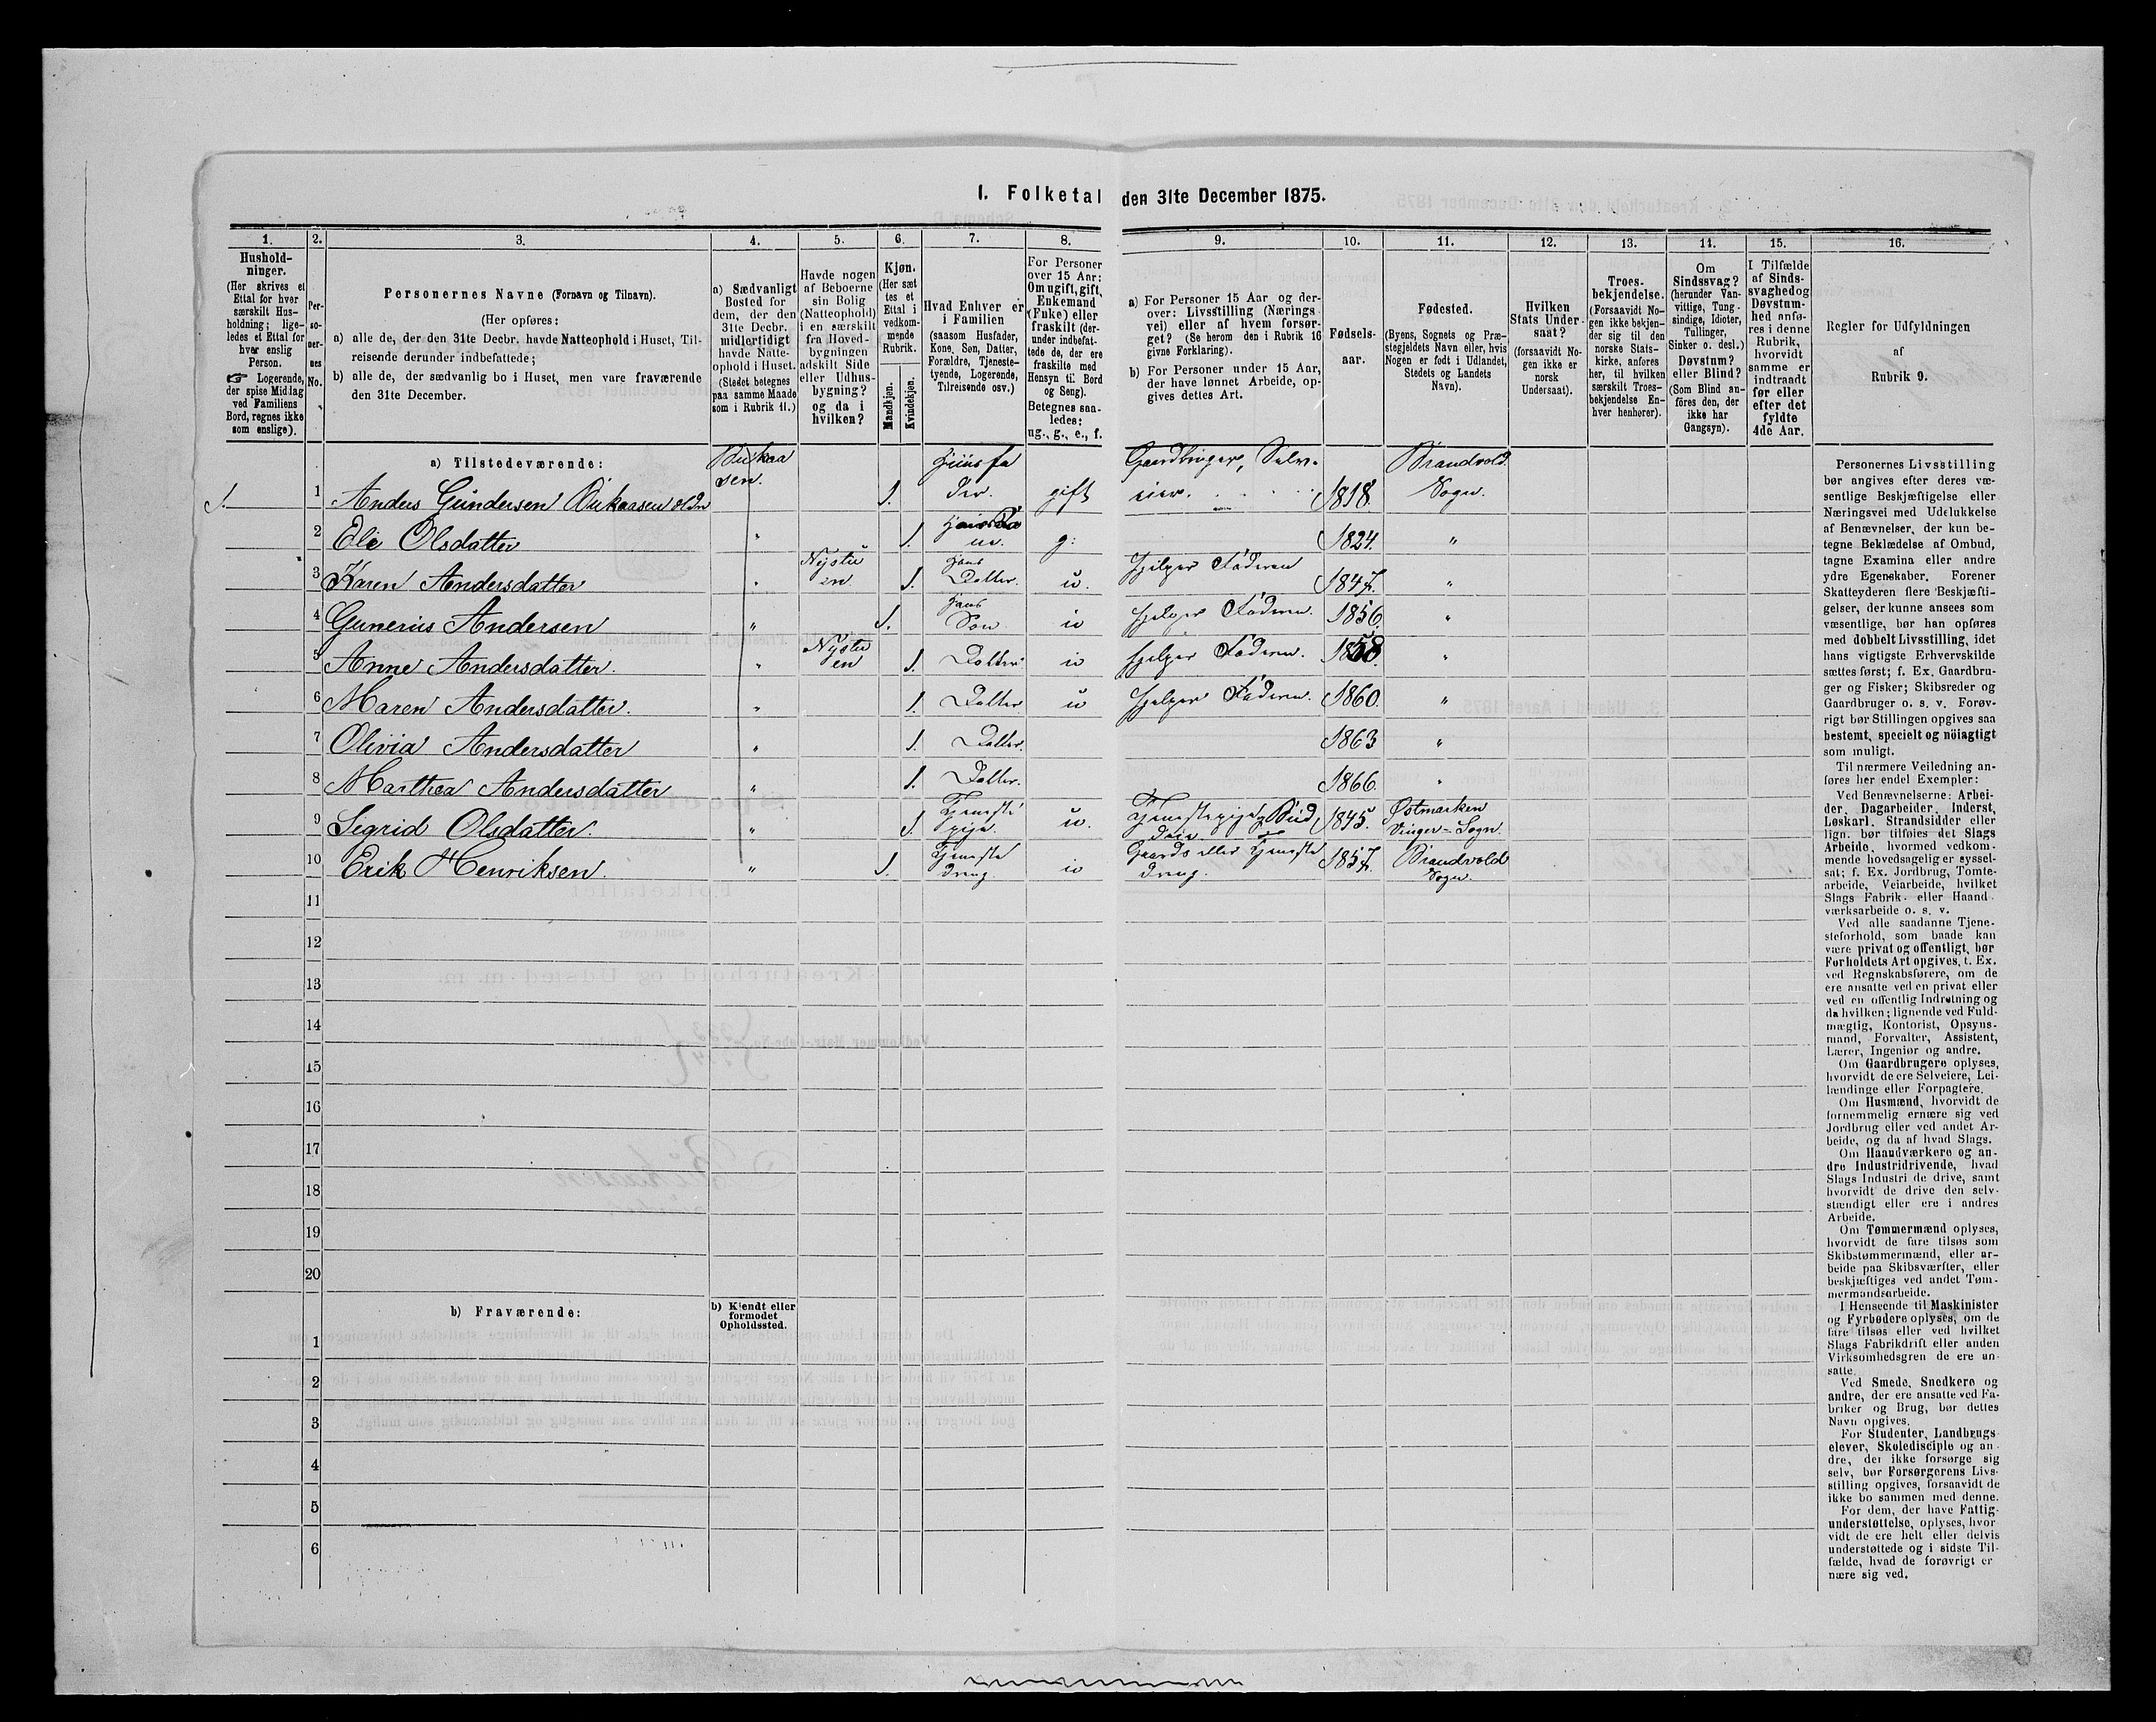 1. Folketal den 31te December 1875.
1.
2.
3.
4.
5.
6.
7.
8.
9.
10.
11.
12.
13.
14.
15.
16.
Hushold-
ninger.
(Her skrives et
Ettal for hver
særskilt Hus-
holdning; lige-
ledes et Ettal for
hver enslig
Person.
☞ Logerende,
der spise Middag
ved Familiens
Bord, regnes ikke
som enslige).
Per-
so-
ner-
nes
No.
Personernes Navne (Fornavn og Tilnavn).
(Her opføres:
a) alle de, der den 31te Decbr. havde Natteophold i Huset, Til-
reisende derunder indbefattede;
b) alle de, der sædvanlig bo i Huset, men vare fraværende
den 31te December.
a) Sædvanligt
Bosted for
dem, der den
31te Decbr.
midlertidigt
havde Natte-
ophold i Huset.
(Stedet betegnes
paa samme Maade
som i Rubrik 11.)
Havde nogen
af Beboerne
sin Bolig
(Natteophold)
i en særskilt
fra Hoved-
bygningen
adskilt Side
eller Udhus-
bygning?
og da i
hvilken?
Kjøn.
(Her sæt
tes et
Ettal i
vedkom-
mende
Rubrik.
Mandkjøn.
Kvindekjøn.
Hvad Enhver er
i Familien
(saasom Husfader,
Kone, Søn, Datter,
Forældre, Tjeneste-
tyende, Logerende,
Tilreisende osv.)
For Personer
over 15 Aar:
Om ugift, gift,
Enkemand
(Enke) eller
fraskilt (der-
under indbefat-
tede de, der ere
fraskilte med
Hensyn til Bord
og Seng).
Betegnes saa-
ledes:
ug., g., e., f.
a) For Personer 15 Aar og der-
over: Livsstilling (Nærings
vei) eller af hvem forsør-
get? (Se herom den i Rubrik 16
givne Forklaring).
b) For Personer under 15 Aar,
der have lønnet Arbeide, op-
gives dettes Art.
Fødsels-
aar.
Fødested.
(Byens, Sognets og Præ-
stegjeldets Navn eller, hvis
Nogen er født i Udlandet,
Stedets og Landets
Navn).
Hvilken
Stats Under-
saat?
(forsaavidt No-
gen ikke er
norsk
Undersaat).
Troes-
bekjendelse.
(Forsaavidt No-
gen ikke bekjen-
der sig til den
norske Stats-
kirke, anføres
her, til hvilken
særskilt Troes-
bekjendelse En-
hver henhører).
Om
Sindssvag?
(herunder Van-
vittige, Tung-
sindige, Idioter,
Tullinger,
Sinker o. desl.)
Døvstum?
eller Blind?
(Som Blind an-
föres den, der
ikke har
Gangsyn).
I Tilfælde
af Sinds-
svaghed og
Døvstum-
hed anfø-
res i denne
Rubrik,
hvorvidt
samme er
indtraadt
før eller
efter det
fyldte
4de Aar.
Regler for Udfyldningen
af
Rubrik 9.
a) Tilstedeværende:
1. 1 Anders Gundersen Bukaasen Bukaasen. 1. Husfader. gift Gaardbruger, Selveier. 1818. Brandvold Sogn.
2 Eli Olsdatter " 1. g: 1824. "
3 Karen Andersdatter " Nystuen 1. hans Datter. u. hjelper Faderen 1847. "
4 Gunerius Andersen " 1. hans Søn u hjelper Faderen. 1856. "
5 Anne Andersdatter. " Nystuen 1. Datter u hjelper Faderen. 1858. "
6 Maren Andersdatter. " 1. Datter u hjelper Faderen. 1860. "
7 Olivia Andersdatter " 1. Datter. 1863 "
8 Marthea Andersdatter " 1. Datter. 1866. "
9 Sigrid Olsdatter. " 1. Tjenestepige. u. Tjenestepige, Buddeie 1845. Østmarken Vinger-Sogn.
10 Erik Henriksen. " 1. Tjenestedreng. u Gaards eller Tjenestedreng. 1857. Brandvold Sogn.
11
12
13
14
15
16
17
18
19
20
b) Fraværende:
b) Kjendt eller
formodet
Opholdssted.
1
2
3
4
5
6
Personernes Livsstilling
bør angives efter deres væ-
sentlige Beskjæftigelse eller
Næringsvei med Udelukkelse
af Benævnelser, der kun be-
tegne Beklædelse af Ombud,
tagne Examina eller andre
ydre Egenskaber. Forener
Skatteyderen flere Beskjæfti-
gelser, der kunne ansees som
væsentlige, bør han opføres
med dobbelt Livsstilling, idet
hans vigtigste Erhvervskilde
sættes først; f. Ex. Gaardbru-
ger og Fisker; Skibsreder og
Gaardbruger o. s. v. Forøv-
rigt bør Stillingen opgives saa
bestemt, specielt og nöiagtigt
som muligt.
Til nærmere Veiledning an-
føres her endel Exempler:
Ved Benævnelserne: Arbei-
der, Dagarbeider, Inderst,
Løskarl, Strandsidder eller
lign. bør tilføies det Slags
Arbeide, hvormed vedkom-
mende hovedsagelig er syssel-
sat; f. Ex. Jordbrug, Tomte-
arbeide, Veiarbeide, hvilket
Slags Fabrik- eller Haand-
værksarbeide o. s. v.
Ved alle saadanne Tjene-
steforhold, som baade kan
være privat og offentligt, bør
Forholdets Art opgives, t. Ex.
ved Regnskabsførere, om de
ere ansatte ved en privat eller
ved en offentlig Indretning og
da hvilken; lignende ved Fuld-
mægtig, Kontorist, Opsyns-
mand, Forvalter, Assistent,
Lærer, Ingeniør og andre.
Om Gaardbrugere oplyses,
hvorvidt de ere Selveiere, Lei-
lændinge eller Forpagtere.
Om Husmænd, hvorvidt de
fornemmelig ernære sig ved
Jordbrug eller ved andet Ar-
beide, og da af hvad Slags.
Om Haandværkere og an-
dre Industridrivende, hvad
Slags Industri de drive, samt
hvorvidt de drive den selv-
stændigt eller ere i andres
Arbeide.
Om Tømmermænd oplyses,
hvorvidt de fare tilsøs som
Skibstømmermænd, eller ar-
beide paa Skibsværfter, eller
beskjæftiges ved andet Tøm-
mermandsarbeide.
I Henseende til Maskinister
og Fyrbødere oplyses, om de
fare tilsøs eller ved hvilket
Slags Fabrikdrift eller anden
Virksomhedsgren de ere an-
satte.
Ved Smede, Snedkere og
andre, der ere ansatte ved Fa-
briker og Brug, bør dettes
Navn opgives.
For Studenter, Landbrugs-
elever, Skoledisciple og an-
dre, der ikke forsørge sig
selv, bør Forsørgerens Livs-
stilling opgives, forsaavidt de
ikke bo sammen med denne.
For dem, der have Fattig-
understøttelse, oplyses, hvor
vidt de ere helt eller delvis
understøttede og i sidste Til-
fælde, hvad de forøvrigt er
nære sig ved.